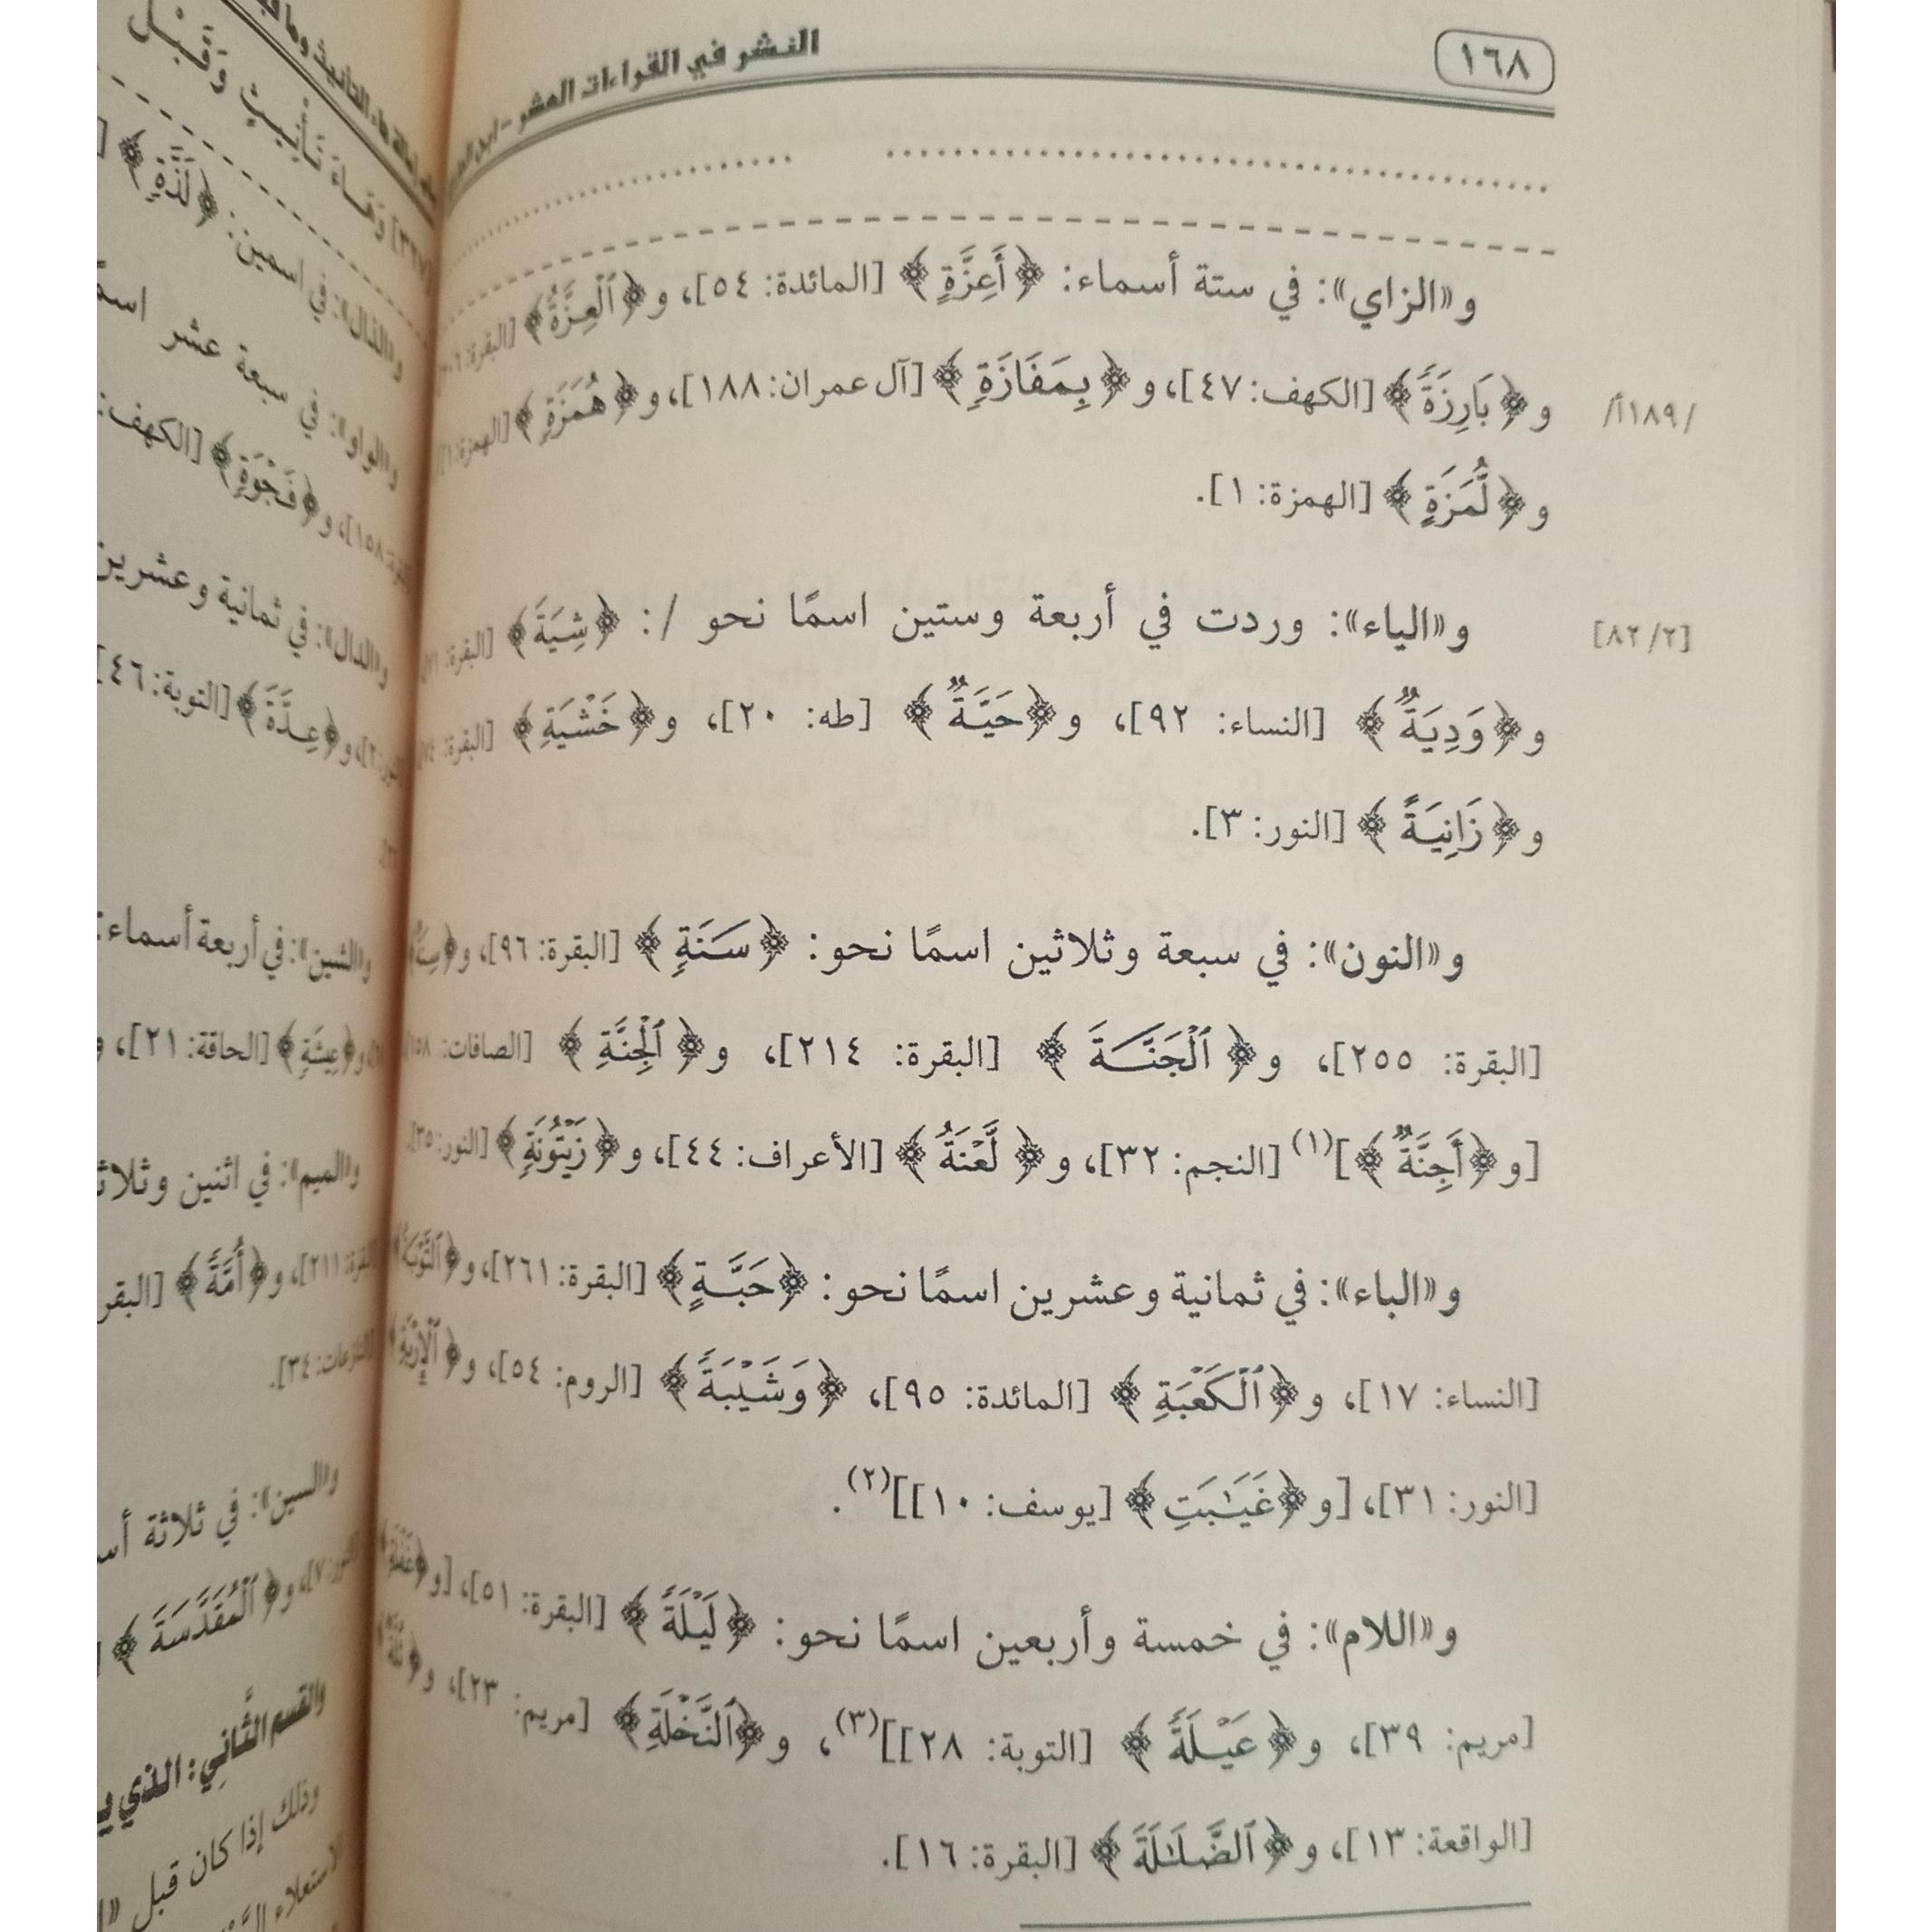 ١٦٨
النشر في القراءات العشر - ابن
و«الزاي»: في ستة أسماء: ﴿أَعِزَّةٍ﴾ [المائدة: ٥٤]، و﴿ٱلْعِزَّةُ﴾ [البقرة:
/١٨٩أ/
و﴿بَارِزَةً﴾ [الكهف: ٤٧]، و﴿بِمَفَازَةٍ﴾ [آل عمران: ١٨٨]، و﴿هُمَزَةٍ﴾ [الهمزة: ١]،
و﴿لُّمَزَةٍ﴾ [الهمزة: ١].
[٨٢/٢]
و«الياء»: وردت في أربعة وستين اسمًا نحو /: ﴿شِيَةَ﴾ [البقرة:
و﴿وَدِيَةٌ﴾ [النساء: ٩٢]، و﴿حَيَّةٌ﴾ [طه: ٢٠]، و﴿خَشْيَةِ﴾ [البقرة:
و﴿زَانِيَةً﴾ [النور: ٣].
و«النون»: في سبعة وثلاثين اسمًا نحو: ﴿سَنَةٍ﴾ [البقرة: ٩٦]، و﴿سِنَةٌ﴾
[البقرة: ٢٥٥]، و﴿ٱلْجَنَّةَ﴾ [البقرة: ٢١٤]، و﴿ٱلْجِنَّةِ﴾ [الصافات: ١٥٨]،
[و﴿أَجِنَّةٌ﴾](١) [النجم: ٣٢]، و﴿لَّعْنَةُ﴾ [الأعراف: ٤٤]، و﴿زَيْتُونَةٍ﴾ [النور: ٣٥].
و«الباء»: في ثمانية وعشرين اسمًا نحو: ﴿حَبَّةٍ﴾ [البقرة: ٢٦١]، و﴿ٱلتَّوْبَةُ﴾
[النساء: ١٧]، و﴿ٱلْكَعْبَةِ﴾ [المائدة: ٩٥]، ﴿وَشَيْبَةً﴾ [الروم: ٥٤]، و﴿ٱلْإِرْبَةِ﴾
[النور: ٣١]، [و﴿غَيَٰبَتِ﴾ [يوسف: ١٠]](٢).
و«اللام»: في خمسة وأربعين اسمًا نحو: ﴿لَيْلَةً﴾ [البقرة: ٥١]، [و﴿غَفْلَةٍ﴾
[مريم: ٣٩]، و﴿عَيْلَةً﴾ [التوبة: ٢٨]](٣)، و﴿ٱلنَّخْلَةِ﴾ [مريم: ٢٣]، و﴿ثُلَّةٌ﴾
[الواقعة: ١٣]، و﴿ٱلضَّلَٰلَةَ﴾ [البقرة: ١٦].
وَهَاءَ تَأْنِيثٍ وَقَبْلُ
و«الذال»: في اسمين: ﴿لَذَّةٍ﴾
و«الواو»: في سبعة عشر
و﴿فَجْوَةٍ﴾ [الكهف:
و«الدال»: في ثمانية وعشرين
و﴿عِدَّةَ﴾ [التوبة: ٤٦]
و«الشين»: في أربعة أسماء:
و﴿عِيشَةٍ﴾ [الحاقة: ٢١]، و
و«الميم»: في اثنين
[البقرة: ٢١١]، و﴿أُمَّةً﴾
[النازعات: ٣٤].
و«السين»: في ثلاثة
و﴿ٱلْمُقَدَّسَةَ﴾
والقسم الثَّاني: الذي
وذلك إذا كان قبل